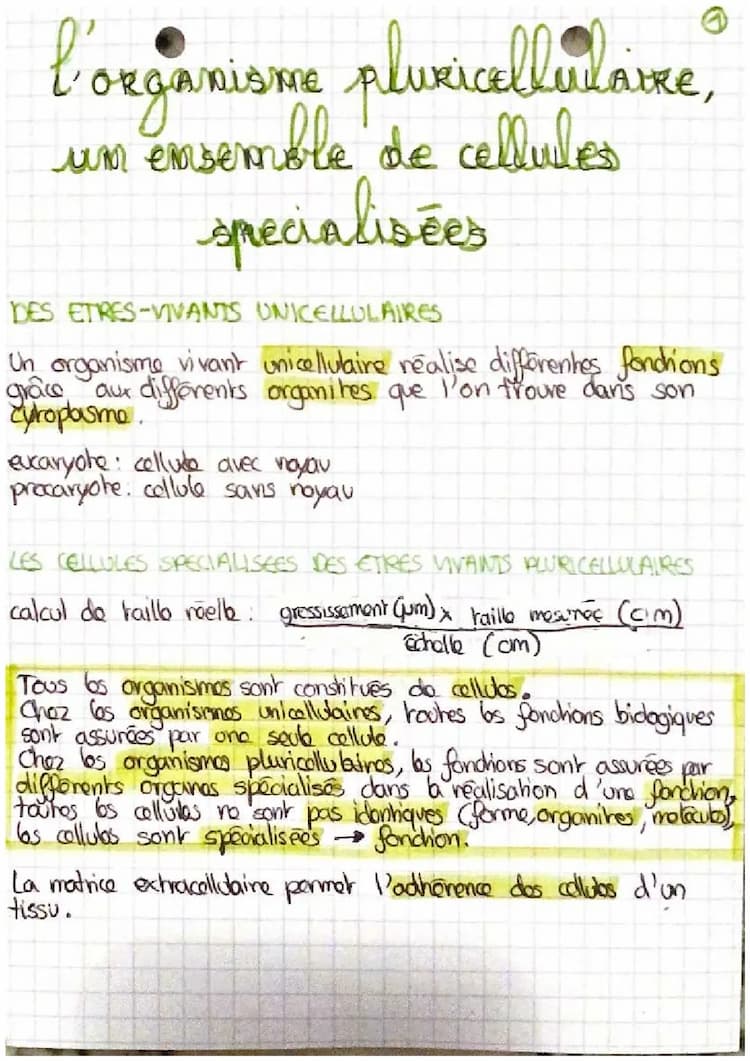 1
L'organisme pluricellulaire,
un ensemble de cellules
specialisées
DES ETRES-VIVANTS UNICELLULAIRES
Un organisme vivant unicellulaire réalise différentes fonctions
grâce aux différents organites que l'on trouve dans son
cytoplasme.
eucaryote : cellule avec noyau
procaryote : cellule sans noyau
LES CELLULES SPECIALISEES DES ETRES VIVANTS PLURICELLULAIRES
calcul de taille réelle : gressissement (µm) x taille mesurée (cm)
échelle (cm)
Tous les organismes sont constitués de cellules.
Chez les organismes unicellulaires, toutes les fonctions biologiques
sont assurées par une seule cellule.
Chez les organismes pluricellulaires, les fonctions sont assurées par
différents organes spécialisés dans la réalisation d'une fonction,
toutes les cellules ne sont pas identiques (forme, organites, molécules),
les cellules sont spécialisées → fonction.
La matrice extracellulaire permet l'adhérence des cellules d'un
tissu.